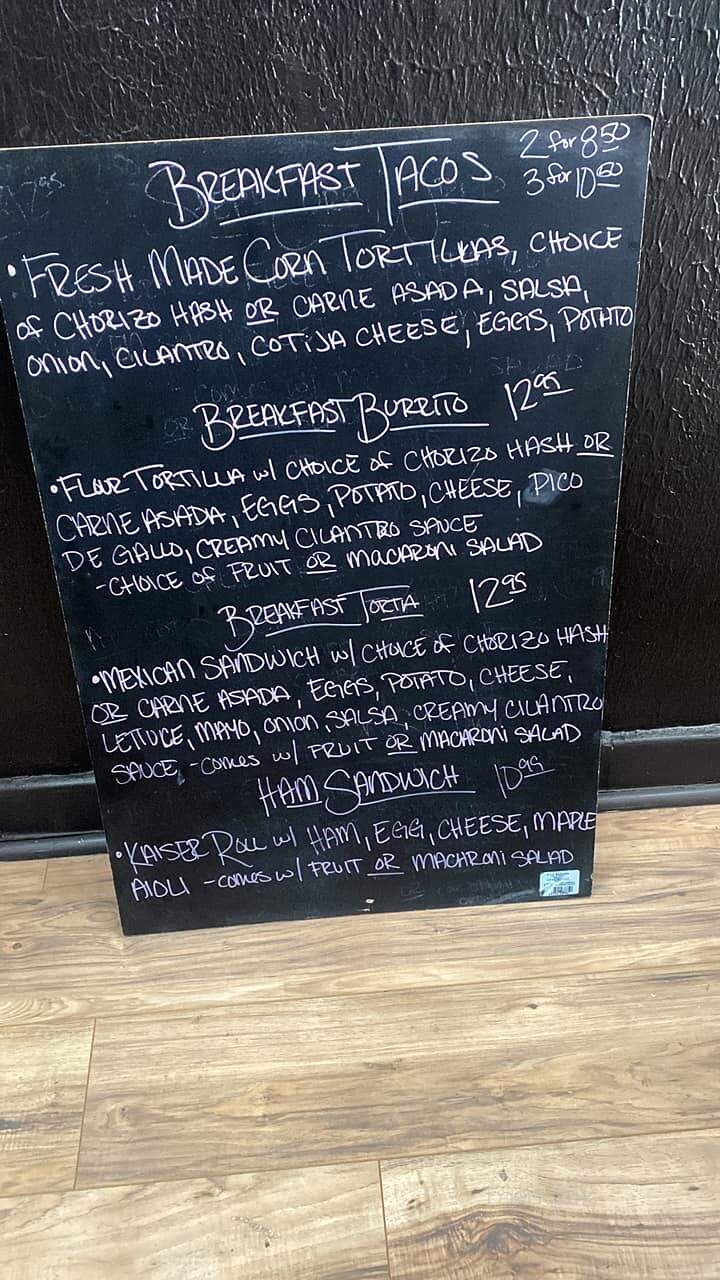 BREAKFAST TACOS 2 for 8.50
3 for 10.50
• FRESH MADE CORN TORTILLAS, CHOICE
of CHORIZO HASH OR CARNE ASADA, SALSA,
ONION, CILANTRO, COTIJA CHEESE, EGGS, POTATO
BREAKFAST BURRITO 12.95
• FLOUR TORTILLA w/ CHOICE of CHORIZO HASH OR
CARNE ASADA, EGGS, POTATO, CHEESE, PICO
DE GALLO, CREAMY CILANTRO SAUCE
- CHOICE of FRUIT OR MACARONI SALAD
BREAKFAST TORTA 12.95
• MEXICAN SANDWICH w/ CHOICE of CHORIZO HASH
OR CARNE ASADA, EGGS, POTATO, CHEESE,
LETTUCE, MAYO, ONION, SALSA, CREAMY CILANTRO
SAUCE, - comes w/ FRUIT OR MACARONI SALAD
HAM SANDWICH 10.95
• KAISER ROLL w/ HAM, EGG, CHEESE, MAPLE
AIOLI - comes w/ FRUIT OR MACARONI SALAD